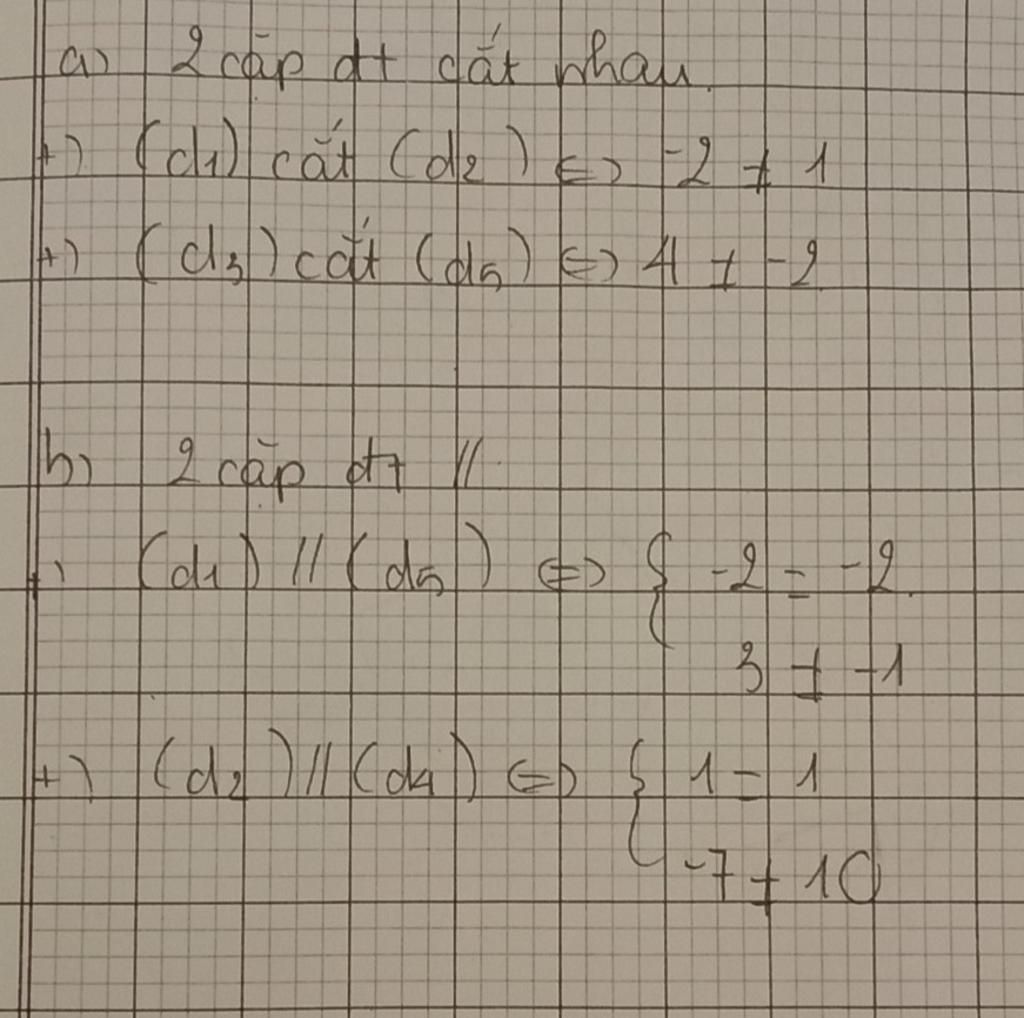 a) 2 cặp đt cắt nhau.
+) (d1) cắt (d2) <=> -2 ≠ 1
+) (d3) cắt (d5) <=> 4 ≠ -2
b) 2 cặp đt //
+) (d1) // (d5) <=> { -2 = -2
3 ≠ -1
+) (d2) // (d4) <=> { 1 = 1
-7 ≠ 10